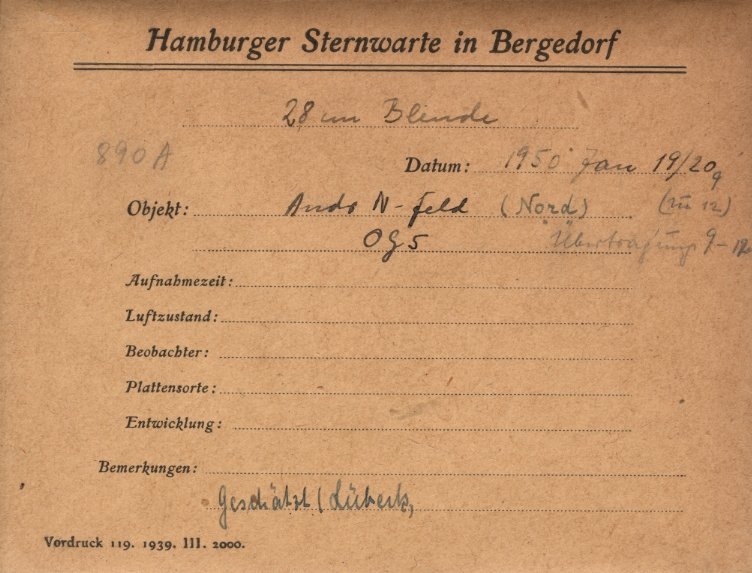 Hamburger Sternwarte in Bergedorf
28 cm Blende
890 A
Datum: 1950 Jan 19/20
9
Objekt: Ando N-feld (Nord) (zu 12)
OG5 Übertragung 9-12
Aufnahmezeit:
Luftzustand:
Beobachter:
Plattensorte:
Entwicklung:
Bemerkungen:
Geschätzt (Lübeck,
Vordruck 119. 1939. III. 2000.